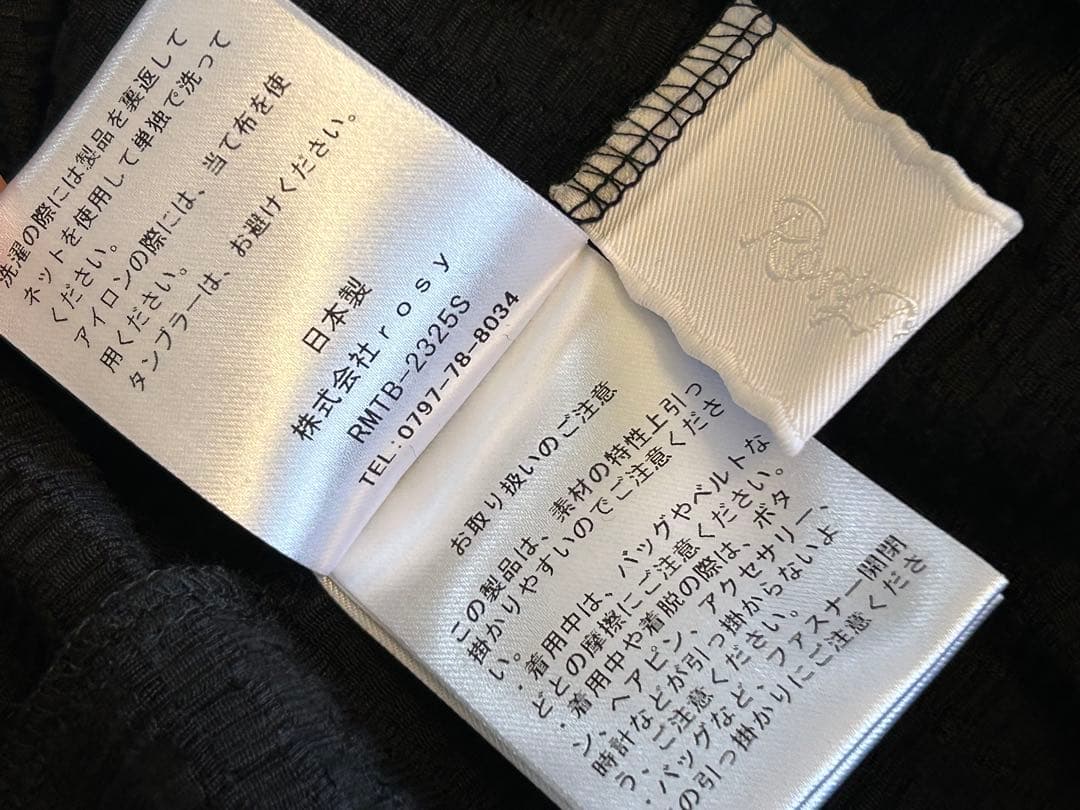 洗濯の際には製品を裏返して
ネットを使用して単独で洗って
ください。
アイロンの際には、当て布を使
用ください。
タンブラーは、お避けください。
日本製
株式会社rosy
RMTB-2325S
TEL:0797-78-8034
お取り扱いのご注意
この製品は、素材の特性上引っ
掛かりやすいのでご注意くださ
い。
・着用中は、バッグやベルトな
どとの摩擦にご注意ください。
・着用中や着脱の際は、ボタ
ン、ヘアピン、アクセサリー、
時計などが引っ掛からないよ
う、ご注意ください。
・バッグなど、ファスナー開閉
の引っ掛かりにご注意くださ